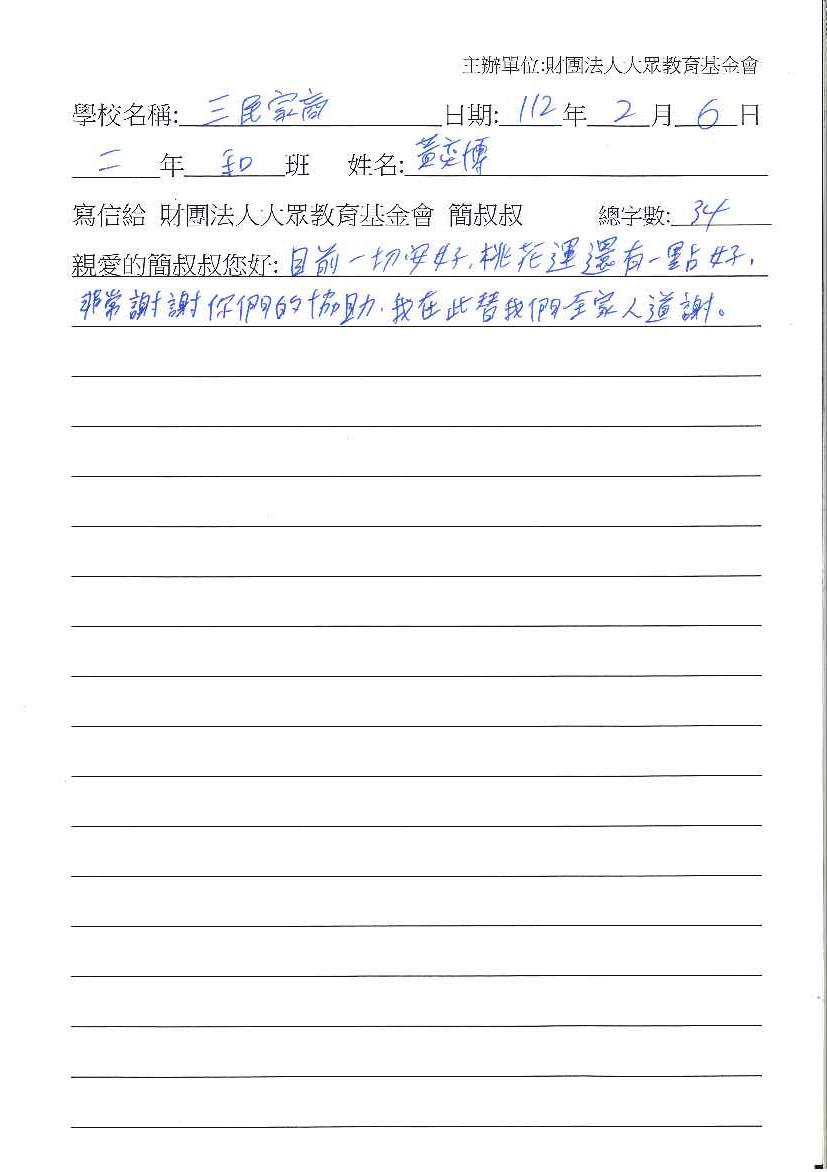 主辦單位:財團法人大眾教育基金會
學校名稱: 三民家商 日期: 112 年 2 月 6 日
二 年 和 班 姓名: 黃奕博
寫信給 財團法人大眾教育基金會 簡叔叔 總字數: 34
親愛的簡叔叔您好: 目前一切安好,桃花運還有一點好,
非常謝謝你們的協助,我在此替我們全家人道謝。